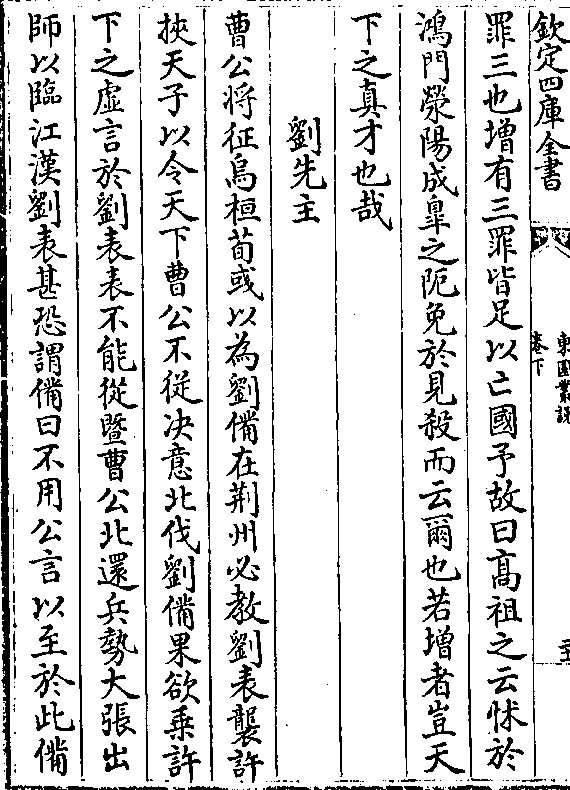 欽定四庫全書
東園叢說
卷下
罪三也增有三罪皆足以亡國予故曰髙祖之云怵於
鴻門滎陽成臯之阨免於見殺而云爾也若增者豈天
下之真才也哉
劉先主
曹公將征烏桓荀彧以為劉備在荆州必教劉表襲許
挾天子以令天下曹公不從决意北伐劉備果欲乗許
下之虚言於劉表表不能從暨曹公北還兵勢大張出
師以臨江漢劉表甚恐謂備曰不用公言以至於此備